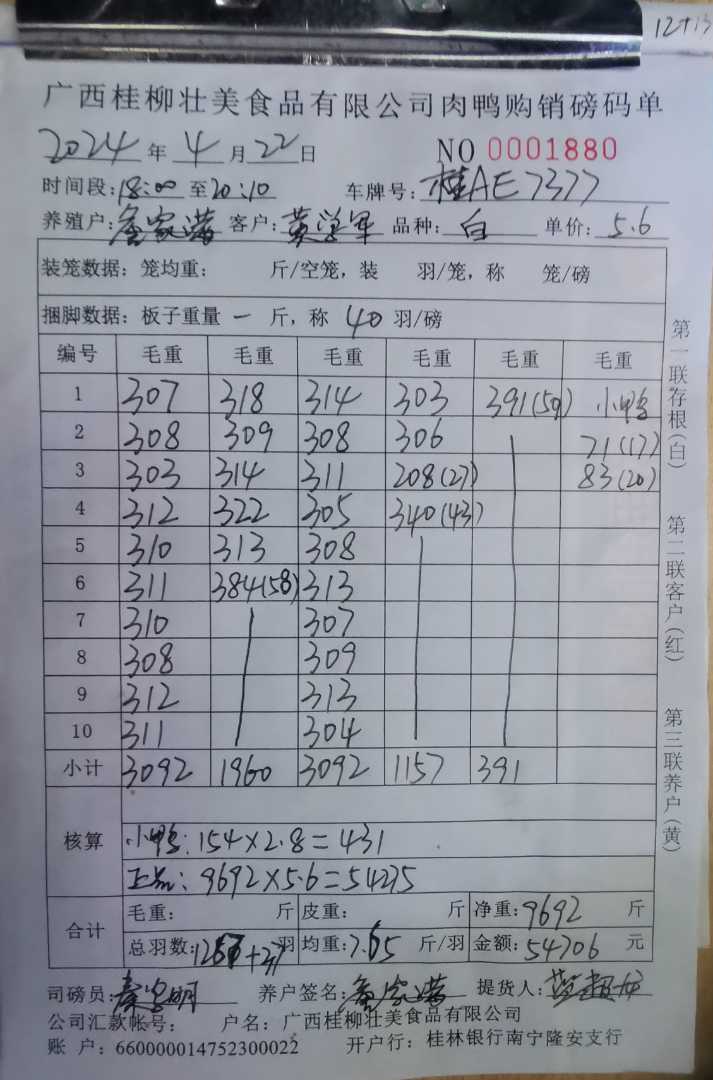 12+13
广西桂柳壮美食品有限公司肉鸭购销磅码单
2024年4月22日 NO 0001880
时间段:18:00至20:10 车牌号:桂AE7377
养殖户: 客户:黄学军 品种:白 单价:5.6
装笼数据:笼均重: 斤/空笼,装 羽/笼,称 笼/磅
捆脚数据:板子重量 一 斤,称 40 羽/磅
编号 毛重 毛重 毛重 毛重 毛重 毛重
1 307 318 314 303 391(59) 小鸭
2 308 309 308 306 71(17)
3 303 314 311 208(27) 83(20)
4 312 322 305 340(43)
5 310 313 308
6 311 384(58) 313
7 310 307
8 308 309
9 312 313
10 311 304
小计 3092 1960 3092 1157 391
核算
小鸭:154×2.8=431
正品:9692×5.6=54275
合计 毛重: 斤 皮重: 斤 净重:9692 斤
总羽数: +37羽 均重:7.65 斤/羽 金额:54706 元
司磅员: 养户签名: 提货人:
公司汇款帐号: 户名:广西桂柳壮美食品有限公司
账 户:660000014752300022 开户行:桂林银行南宁隆安支行
第一联存根(白)
第二联客户(红)
第三联养户(黄)